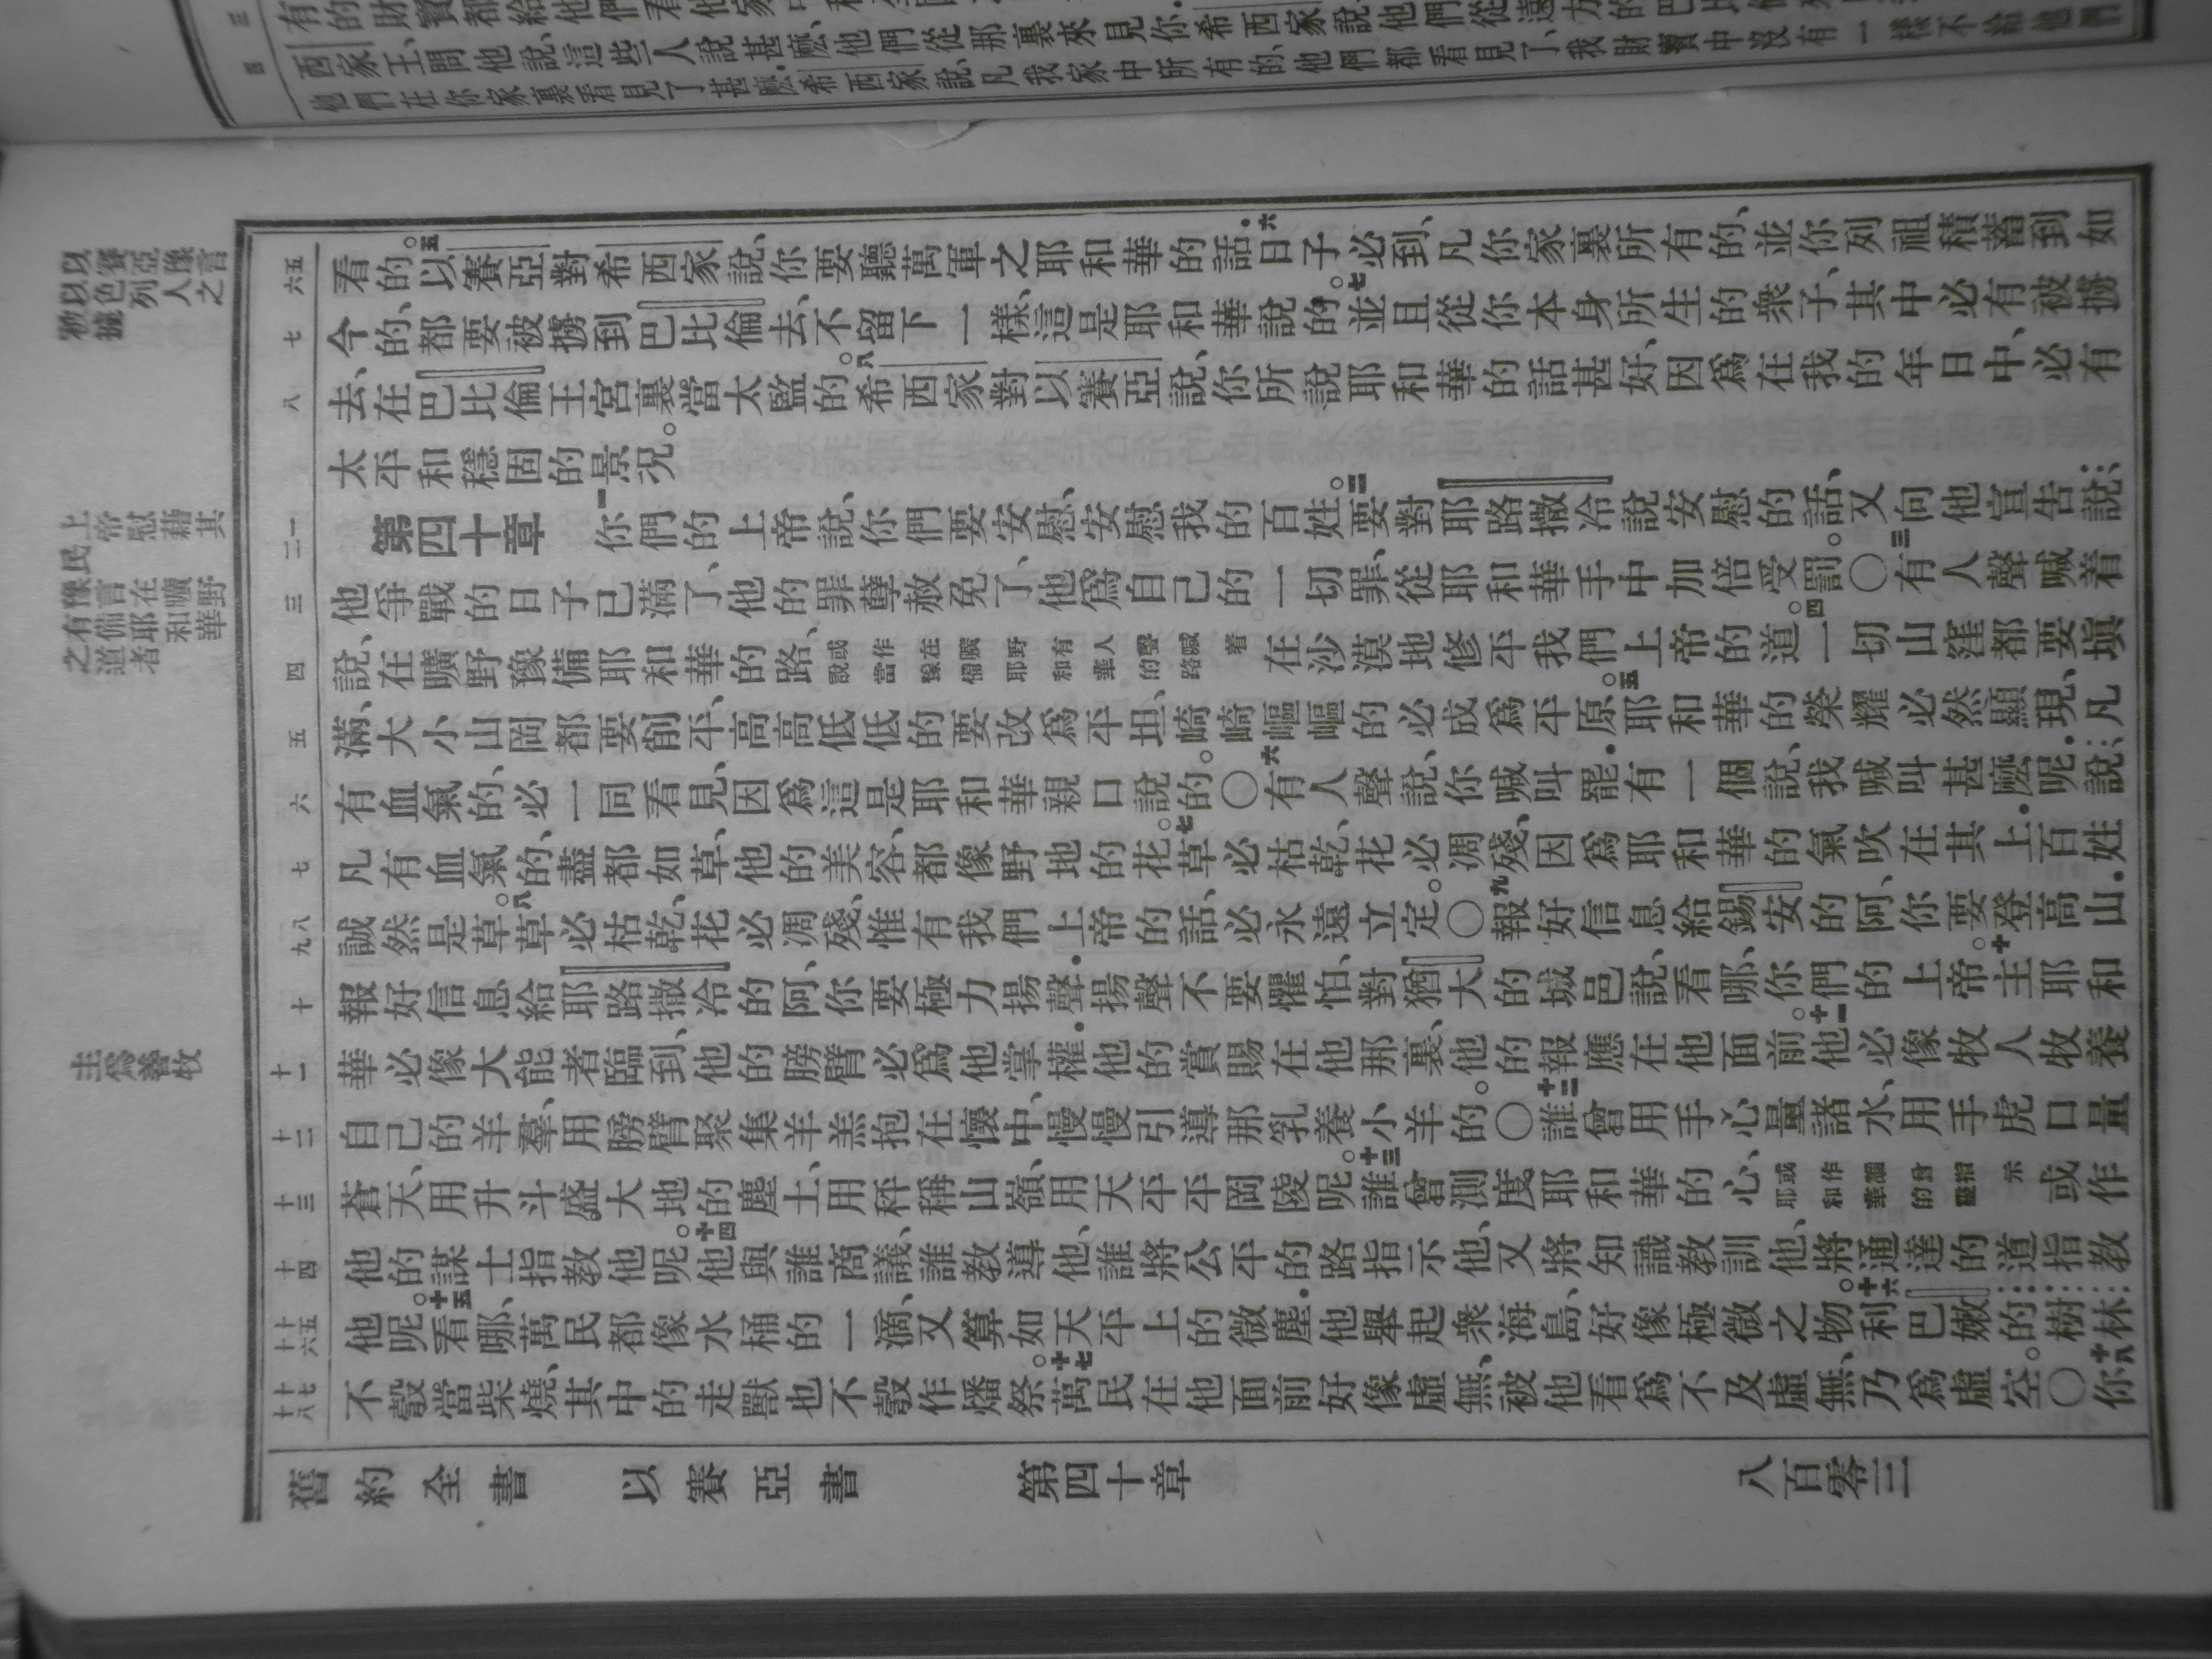 西家王問他說、這些人說甚麽他們從那裏來見你希西家說他們從遠方的巴比倫
他們在你家裏看見了甚麽希西家說、凡我家中所有的、他們都看見了、我財寶中沒有一樣不給他們
以賽亞豫言
以色列人之
被擄
六五
看的。五以賽亞對希西家說、你要聽萬軍之耶和華的話．六日子必到、凡你家裏所有的、並你列祖積蓄到如
七
今的、都要被擄到巴比倫去、不留下一樣、這是耶和華說的。七並且從你本身所生的衆子、其中必有被擄
八
去、在巴比倫王宮裏當太監的。八希西家對以賽亞說、你所說耶和華的話甚好、因爲在我的年日中、必有
太平和穩固的景況。
上帝慰藉其
民
二一
第四十章 一你們的上帝說、你們要安慰、安慰我的百姓。二要對耶路撒冷說安慰的話、又向他宣告說：
豫言在曠野
有備耶和華
之道者
三
他爭戰的日子已滿了、他的罪孽赦免了、他爲自己的一切罪、從耶和華手中加倍受罰。〇三有人聲喊着
四
說、在曠野豫備耶和華的路、或作在曠野有人聲喊着說當豫備耶和華的路在沙漠地修平我們上帝的道。四一切山窪都要塡
五
滿、大小山岡都要削平、高高低低的要改爲平坦、崎崎嶇嶇的必成爲平原。五耶和華的榮耀必然顯現、凡
六
有血氣的、必一同看見、因爲這是耶和華親口說的。〇六有人聲說、你喊叫罷．有一個說、我喊叫甚麽呢．說：
七
凡有血氣的、盡都如草、他的美容、都像野地的花。七草必枯乾、花必凋殘、因爲耶和華的氣吹在其上．百姓
九八
誠然是草。八草必枯乾、花必凋殘、惟有我們上帝的話、必永遠立定。〇九報好信息給錫安的阿、你要登高山．
十
報好信息給耶路撒冷的阿、你要極力揚聲．揚聲不要懼怕、對猶大的城邑說、看哪、你們的上帝。十主耶和
主爲善牧
十一
華必像大能者臨到、他的膀臂必爲他掌權．他的賞賜在他那裏、他的報應在他面前。十一他必像牧人牧養
十二
自己的羊羣、用膀臂聚集羊羔抱在懷中、慢慢引導那乳養小羊的。〇十二誰曾用手心量諸水、用手虎口量
十三
蒼天、用升斗盛大地的塵土、用秤稱山嶺、用天平平岡陵呢。十三誰曾測度耶和華的心、或作誰曾指示耶和華的靈或作
十四
他的謀士指敎他呢。十四他與誰商議、誰敎導他、誰將公平的路指示他、又將知識敎訓他、將通達的道指敎
十六十五
他呢。十五看哪、萬民都像水桶的一滴、又算如天平上的微塵．他舉起衆海島、好像極微之物。十六利巴嫩的樹林、
十八十七
不彀當柴燒、其中的走獸也不彀作燔祭。十七萬民在他面前好像虛無、被他看爲不及虛無、乃爲虛空。〇十八你
舊約全書 以賽亞書 第四十章 八百零三